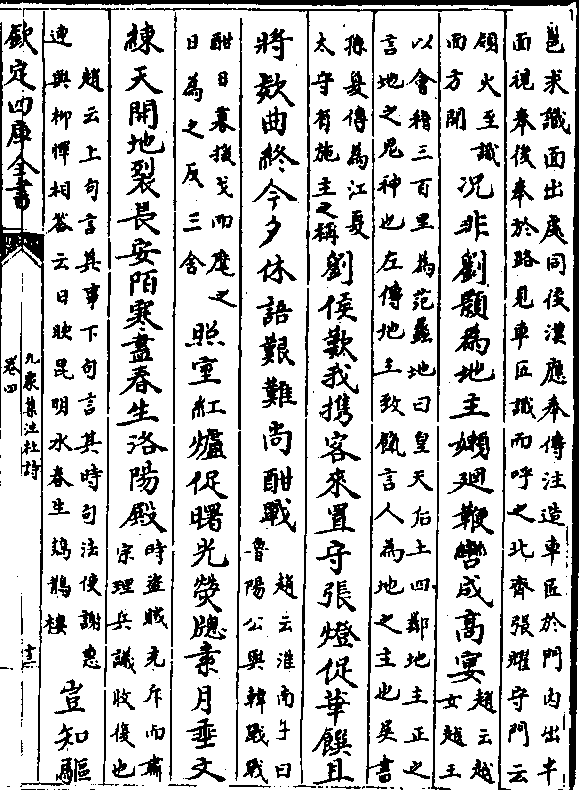 邕求識面出處同後漢應奉傳注造車匠於門内出半
面視奉後奉於路見車匠識而呼之北齊張耀守門云
須火至識
面方開
况非劉顥為地主嬾廻鞭轡成高宴
趙云越
女趙王
以會稽三百里為范蠡地曰皇天后土四鄰地主正之
言地之尼神也左傳地主致餼言人為地之主也吳書
孫皎傳為江夏
太守有施主之稱
劉侯歎我携客來置守張燈促華饌且
將欵曲終今夕休語艱難尚酣戰
趙云淮南子曰
魯陽公與韓戰戰
酣日暮援戈而麾之
日為之反三舍
照室紅爐促曙光熒牎素月垂文
練天開地裂長安陌寒盡春生洛陽殿
時盜賊充斥而肅
宗理兵議收復也
趙云上句言其事下句言其時句法使謝惠
連與柳惲相答云日映昆明水春生鳷鵲樓
豈知驅
欽定四庫全書
九家集注杜詩
卷四